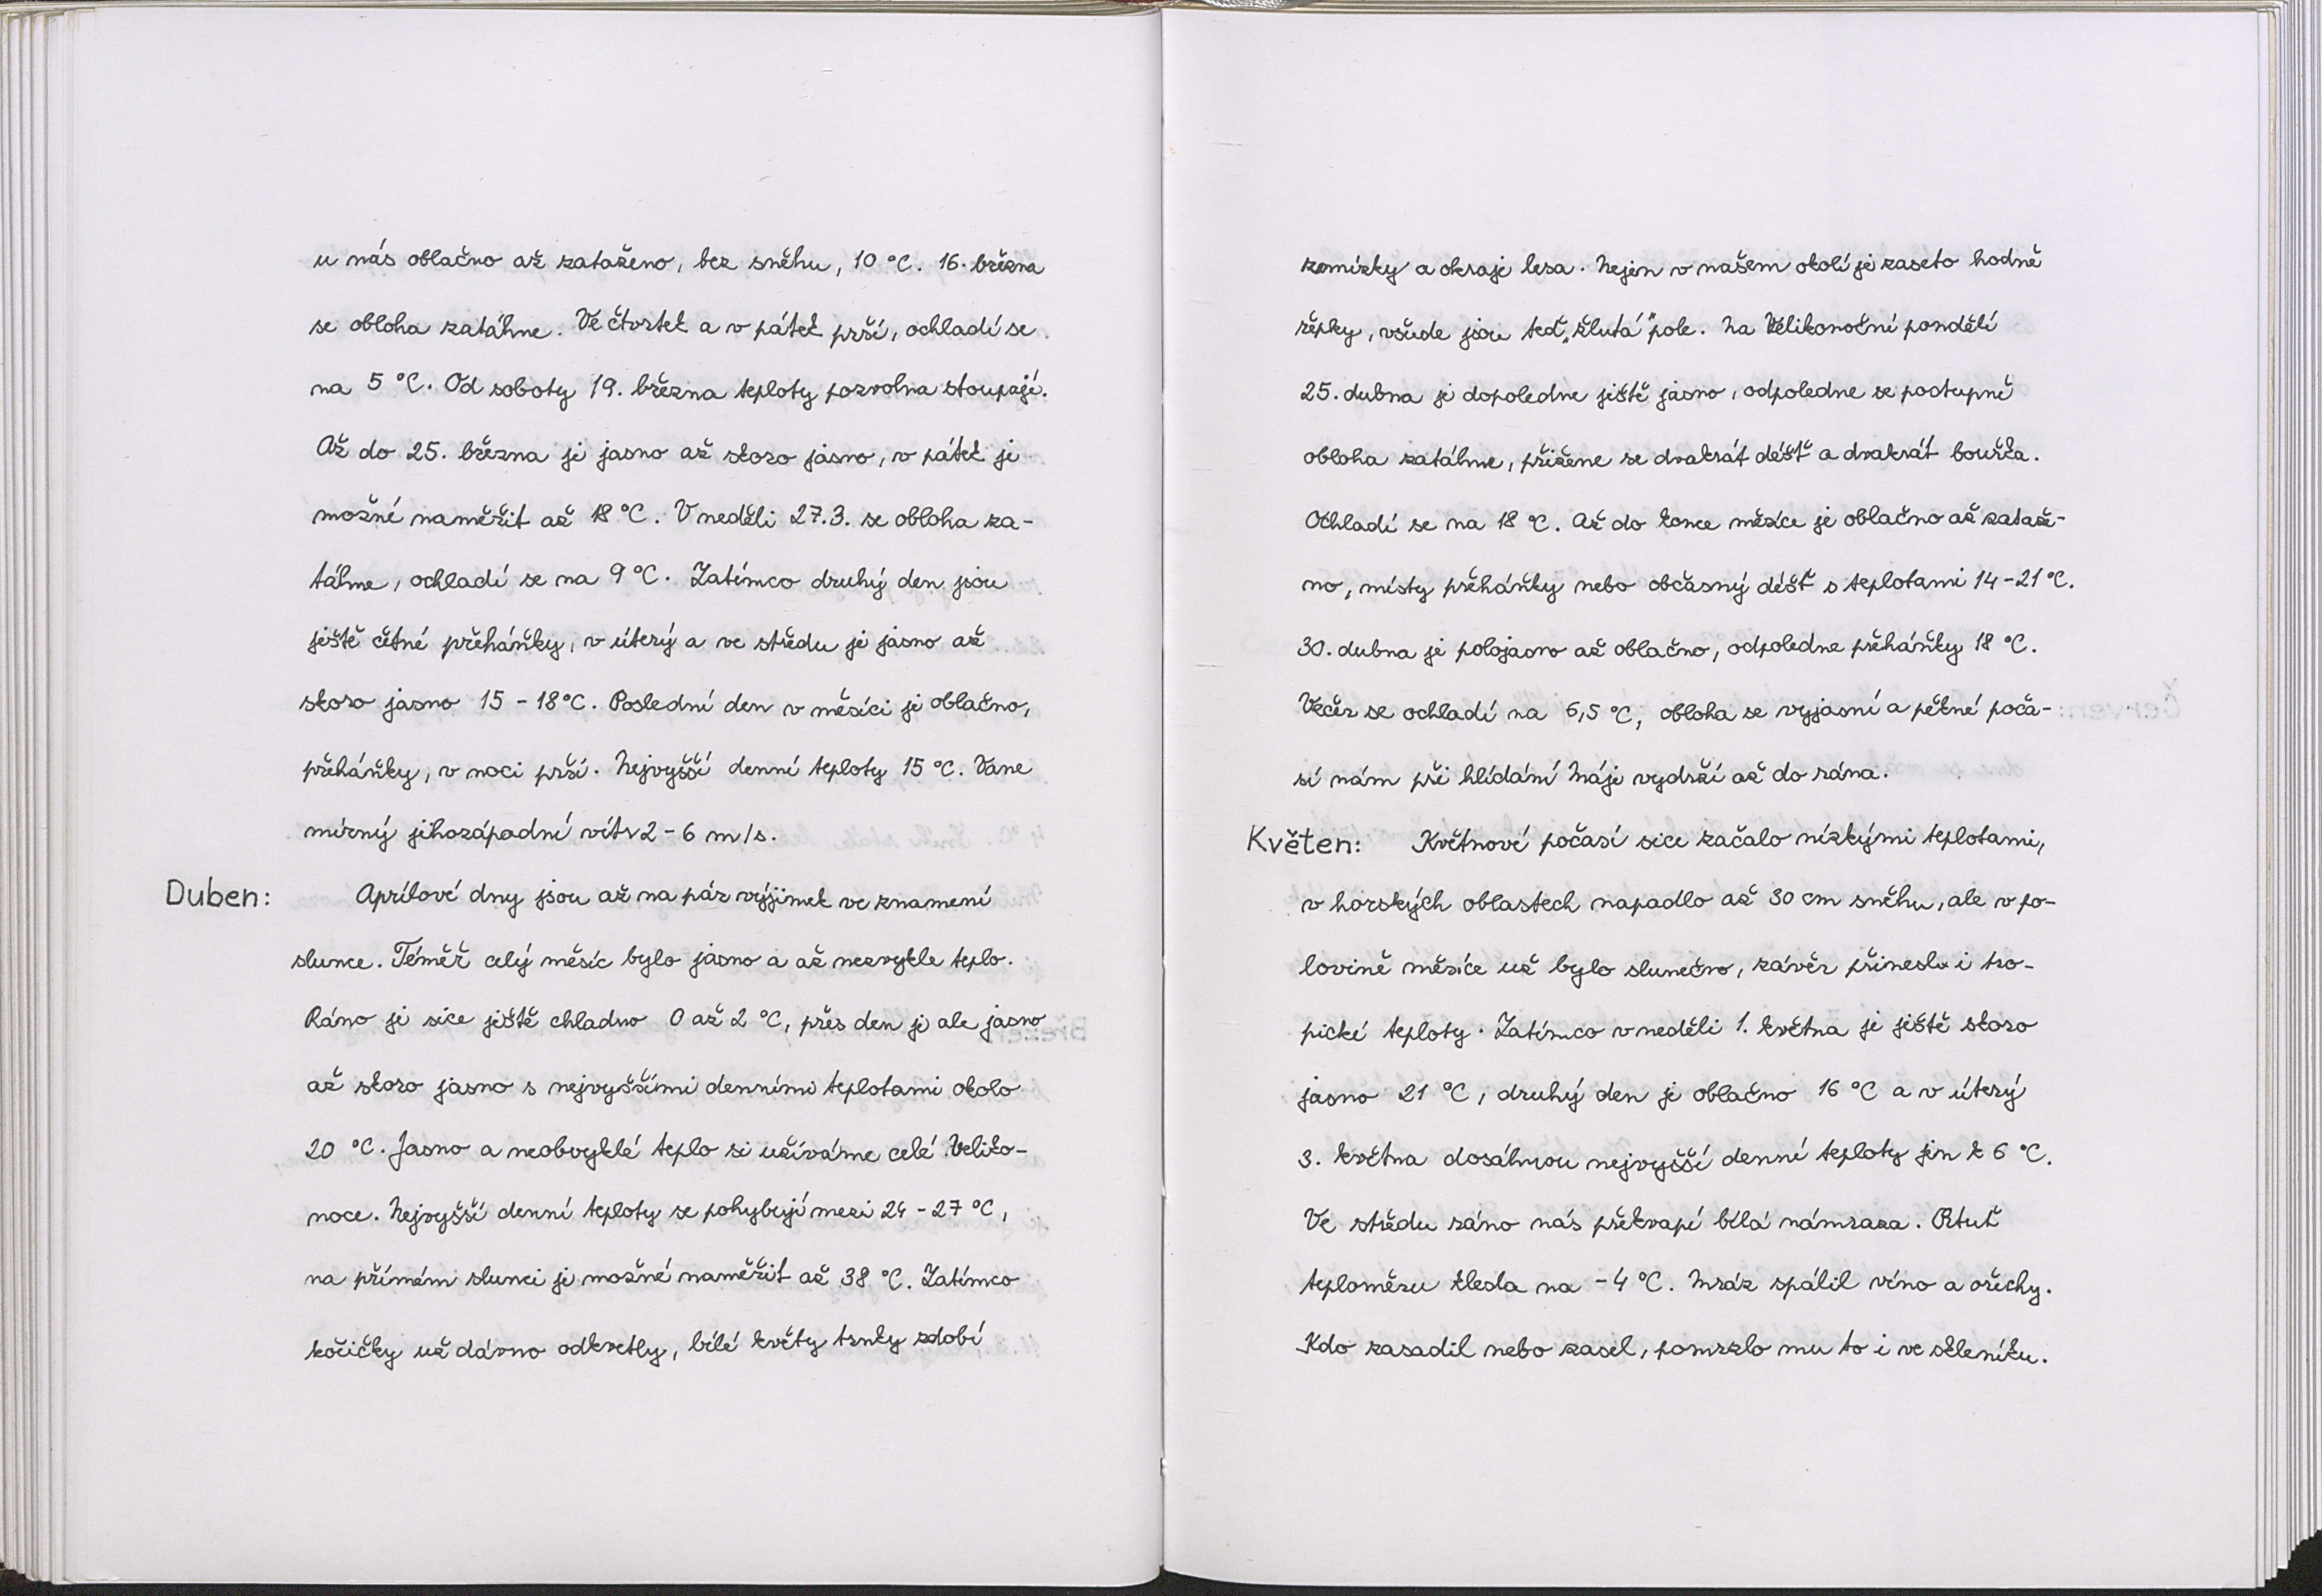 u nás oblačno až zataženo, bez sněhu, 10 °C. 16. března
se obloha zatáhne. Ve čtvrtek a v pátek prší, ochladí se
na 5 °C. Od soboty 19. března teploty pozvolna stoupají.
Až do 25. března je jasno až skoro jasno, v pátek je
možné naměřit až 18 °C. V neděli 27.3. se obloha za-
táhne, ochladí se na 9 °C. Zatímco druhý den jsou
ještě četné přeháňky, v úterý a ve středu je jasno až
skoro jasno 15 - 18 °C. Poslední den v měsíci je oblačno,
přeháňky, v noci prší. Nejvyšší denní teploty 15 °C. Vane
mírný jihozápadní vítr 2 - 6 m/s.
Duben: Aprílové dny jsou až na pár výjimek ve znamení
slunce. Téměř celý měsíc bylo jasno a až nezvykle teplo.
Ráno je sice ještě chladno 0 až 2 °C, přes den je ale jasno
až skoro jasno s nejvyššími denními teplotami okolo
20 °C. Jasno a neobvyklé teplo si užíváme celé Veliko-
noce. Nejvyšší denní teploty se pohybují mezi 24 - 27 °C,
na přímém slunci je možné naměřit až 38 °C. Zatímco
kočičky už dávno odkvetly, bílé květy trnky zdobí
remízky a okraje lesa. Nejen v našem okolí je zaseto hodně
řepky, všude jsou teď „žlutá" pole. Na Velikonoční pondělí
25. dubna je dopoledne ještě jasno, odpoledne se postupně
obloha zatáhne, přižene se dvakrát déšť a dvakrát bouřka.
Ochladí se na 18 °C. Až do konce měsíce je oblačno až zataže-
no, místy přeháňky nebo občasný déšť s teplotami 14 - 21 °C.
30. dubna je polojasno až oblačno, odpoledne přeháňky 18 °C.
Večer se ochladí na 6,5 °C, obloha se vyjasní a pěkné poča-
sí nám při hlídání Máje vydrží až do rána.
Květen: Květnové počasí sice začalo nízkými teplotami,
v horských oblastech napadlo až 30 cm sněhu, ale v po-
lovině měsíce už bylo slunečno, závěr přinesl i tro-
pické teploty. Zatímco v neděli 1. května je ještě skoro
jasno 21 °C, druhý den je oblačno 16 °C a v úterý
3. května dosáhnou nejvyšší denní teploty jen k 6 °C.
Ve středu ráno nás překvapí bílá námraza. Rtuť
teploměru klesla na -4 °C. Mráz spálil víno a ořechy.
Kdo zasadil nebo zasel, pomrzlo mu to i ve skleníku.